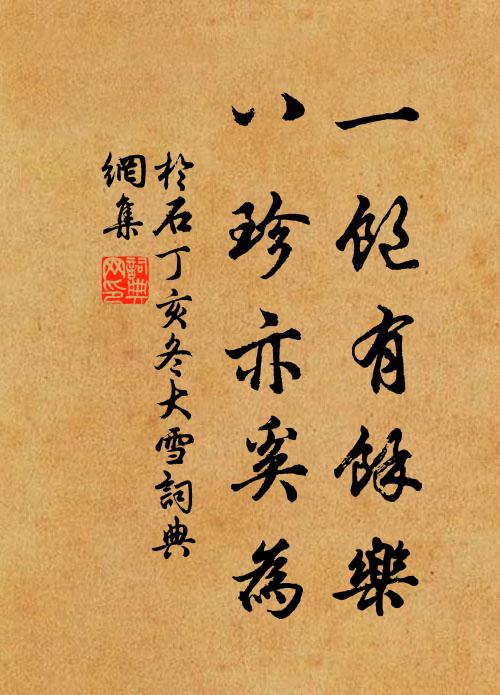 一飽有餘樂
八珍亦奚為
於石丁亥冬大雪詞典
網集
詞典
网印